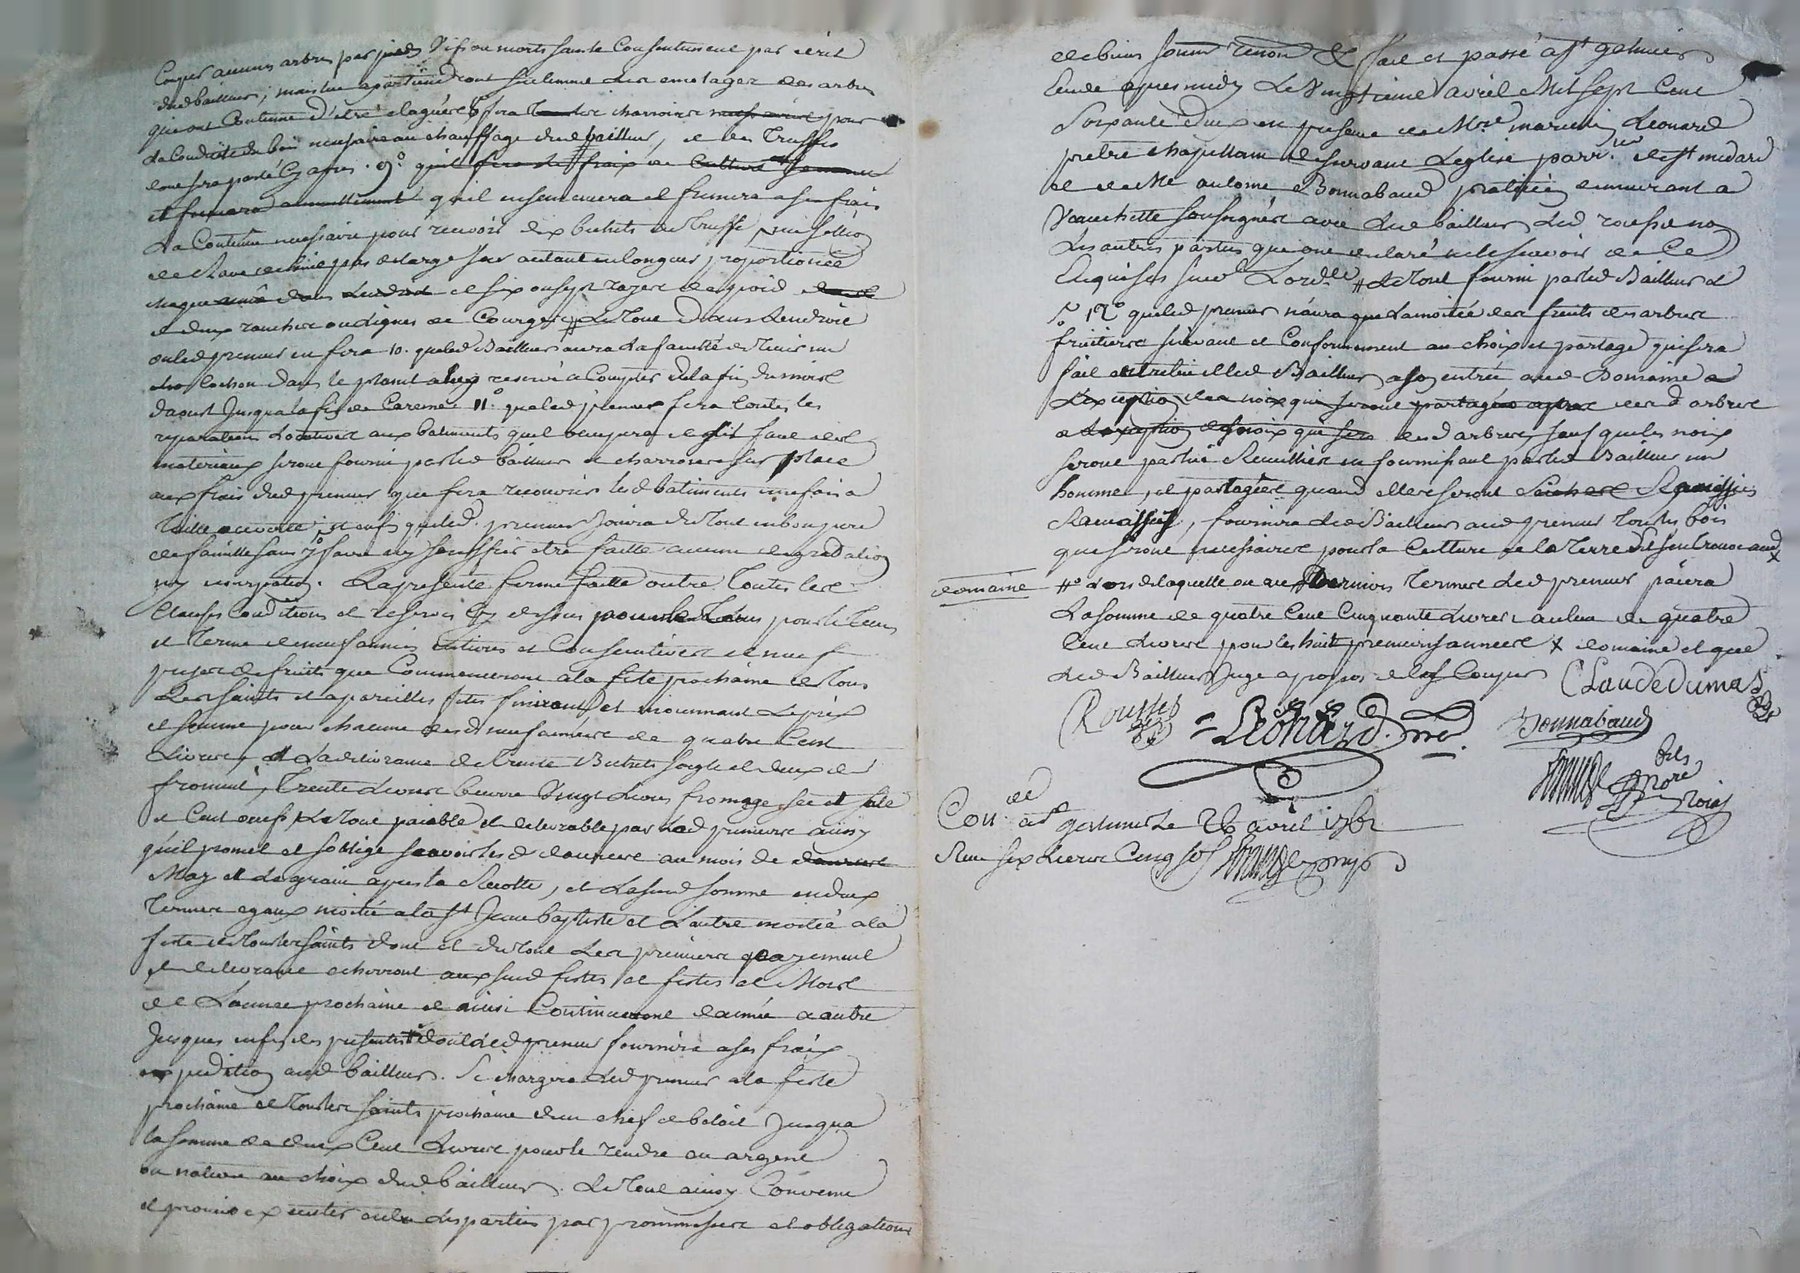 Couper aucuns arbres par pied Vif ou morts sans le Consentement par écrit
dud bailleur, mais luy apartiendront seulement les emolages des arbres
qui ont Coutume d'etre elagués 8° fera charroirer pour
La Conduite du bois necessaire au chauffage dud bailleur, et des Truffes
dont sera parlé Cy apres. 9° qu'il fera les frais de Culture
et fumera annuellement qu'il ensemencera et fumera a ses frais
La Contenue necessaire pour recevoir dix bichets de Truffe, une sellion
de Rave de huit pas de large sur autant en longueur proportionée
et six ou sept razes de pois
et deux ranches ou lignes de Courges # Le Tout Dans Lendroit
ou led preneur en fera 10. que led Bailleur aura La faculté de Tenir un
Cochon dans le plasuit reservé a Compter de la fin du mois
Daoust Jusqua la fin de Careme 11° que led preneur fera toutes les
reparations Locatives aux batiments quil occupera
materiaux seront fourni par led bailleur et charroires sur place
aux frais dud preneur que fera recouvrir lesd batiments une fois a
Taille ouverte; et enfin que led. preneur Jouira du Tout en bon pere
de famille sans y faire ny souffrir etre faitte aucune degradation
ny usurpation. La presente ferme faitte outre Toutes les
Clauses Conditions et reserves Cy dessus pour le Tems
et Terme de neuf années Entieres et Consecutives et neuf
prises de fruits que Commenceront a la fete prochaine de Tous
Les Saints et a pareilles fetes finiront, et moiennant Le prix
et somme pour chacune desd neuf années de quatre Cent
Livres, et La delivrance de trente Bichets seigle et deux de
froment, Trente Livres beurre Vingt Livres fromage sec et salé
et Cent oeufs, Le Tout paiable et delivrable par Led preneurs ainsy
quil promet et soblige scavoir lesd danrées au mois de
May et Le grain apres la Recolte, et Lasusd somme en deux
Termes egaux moitié a la St Jean baptiste et L'autre moitié a la
fete de Tous les Saints dont et du Tout Les premiers payement
et delivrance echerront aux susd festes et festes et Mois
de L'année prochaine et ainsi Continueront d'année a autre
Jusques enfin des presentes dont led preneur fournira a ses frais
expedition aud bailleur. Se chargera Led preneur a la feste
prochaine de Tous les Saints prochaine d'un chef de betail Jusqua
la somme de deux Cent Livres pour le rendre en argent
ou nature au choix dud bailleur. Le Tout ainsy Convenu
et promis executer entre les parties par promesses et obligations
de biens soum renon & fait et passé a St germier
Lande apres midy Le Vingtieme avril Mil Sept Cent
Soixante Deux en presence de Mre Leonard
pretre Chapellain desservant Leglise parr.le de St medard
et de Me antoine Bonnabaud praticien demeurant a
Vauchette soussignés avec Led bailleur Led rousset non
Les autres parties que ont declaré ne le scavoir de Ce
Enquises suiv.t Lord.ce # Le Tout fourni par led Bailleur
12° que led preneur n'aura que La moitié des fruits des arbres
fruitiers suivant et Conformement au choix et partage qui sera
fait entre lui et led Bailleur a son entrée aud Domaine a
L'exception des noix que seront partagées desd arbres
desd arbres, sauf que les noix
seront par lui Recuillies en fournissant par led Bailleur un
homme, et partagées quand elles seront
Ramassées, fournira Led Bailleur aud preneur Tous les bois
que seront necessaires pour la Culture de la Terre sil sen trouve aud X
domaine # lors de laquelle ou aud Derniers Termes Led preneur païera
La somme de quatre Cent Cinquante Livres au lieu de quatre
Cent Livres pour les huit premieres années X domaine et que
Led Bailleur Juge a propos de les Couper Claude Dumas
Rousset Leonard. ptre Bonnabaud
fils
Con.lé a St germier Le 26 avril 1762
Reçu six Livres Cinq sols